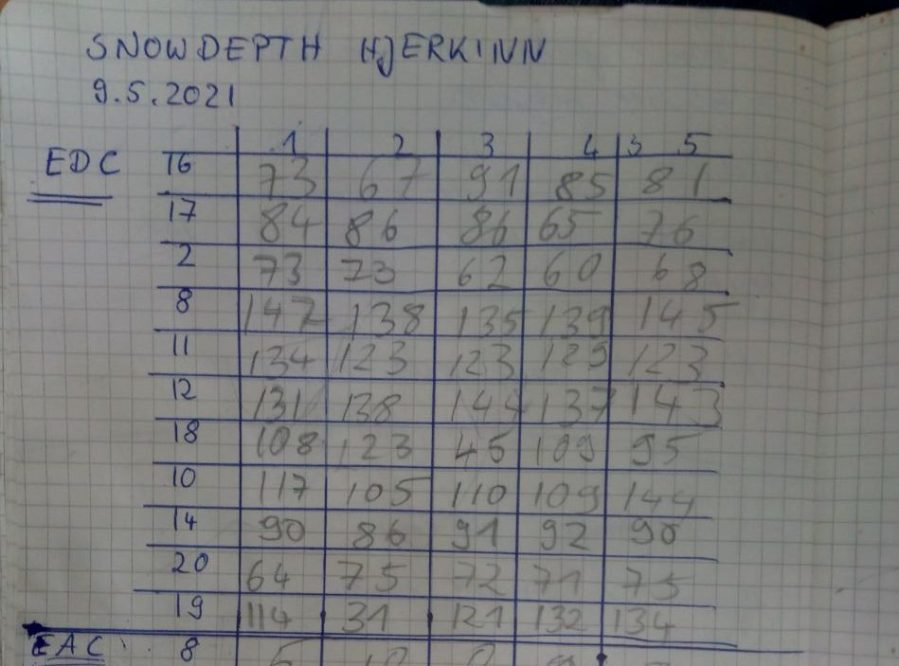 SNOWDEPTH HJERKINN
9.5.2021
1 2 3 4 5
EDC 16 73 67 91 85 81
17 84 86 86 65 76
2 73 73 62 60 68
8 147 138 135 139 145
11 134 123 123 129 123
12 131 138 144 137 143
18 108 123 45 109 95
10 117 105 110 109 144
14 90 86 91 92 90
20 64 75 72 71 75
19 114 31 121 132 134
EAC 8